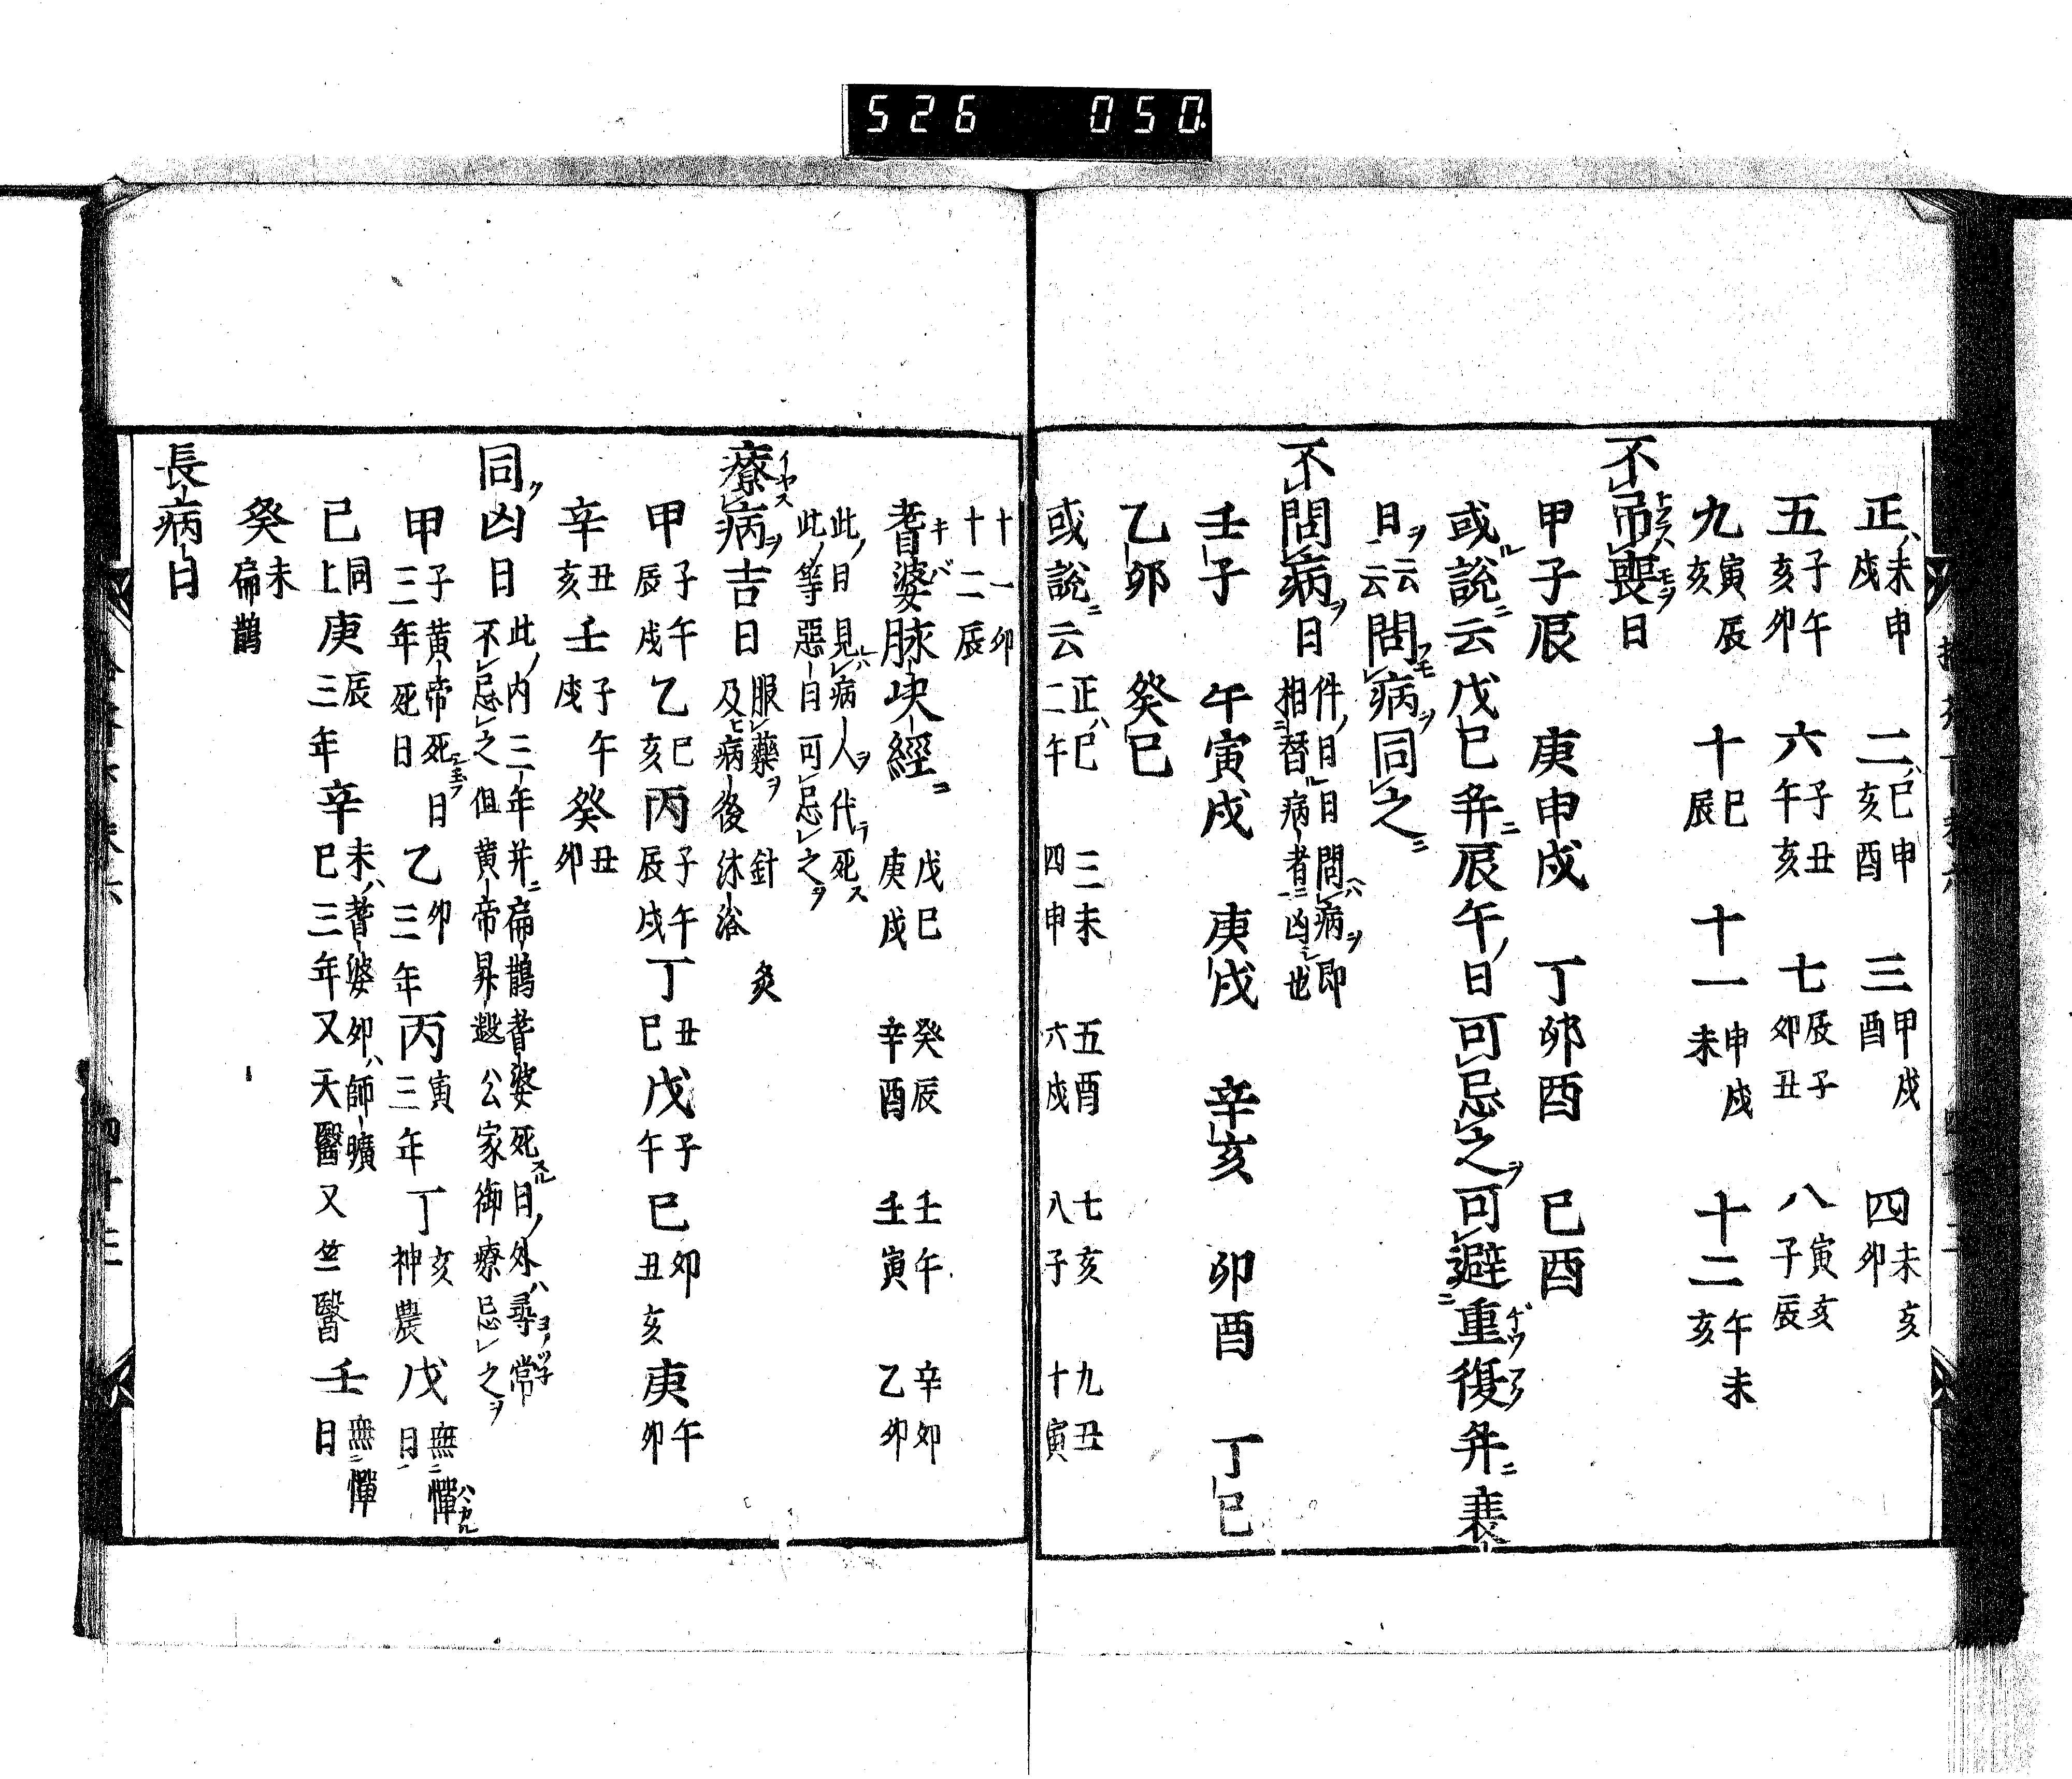 526 050
正ハ未申戌 二ハ巳申亥酉 三甲戌酉 四未亥卯
五子午亥卯 六子丑午亥 七辰子卯丑 八寅亥子辰
九寅辰亥 十巳辰 十一申戌未 十二午未亥
不吊喪日
甲子辰 庚申戌 丁卯酉 巳酉
或説ニ云戊巳并ニ辰午ノ日可忌之ヲ可避重復并ニ裹
日ヲ云云問病ヲ同之ニ
不問病ヲ日 件ノ日日問ハ病ヲ即相替病者ニ凶也
壬子 午寅戌 庚戌 辛亥 卯酉 丁巳
乙卯 癸巳
或説ニ云 正ハ巳二午 三未四申 五酉六戌 七亥八子 九丑十寅
十一卯十二辰
耆婆脉決經ニ 戊巳庚戌 癸辰辛酉 壬午壬寅 辛卯乙卯
此ノ日見ハ病人ヲ代ラ死ス此ノ等惡日可忌之ヲ
療病ヲ吉日 服藥ヲ 針 灸及ヒ病後沐浴
甲子午辰戌 乙巳亥 丙子午辰戌 丁丑巳 戊子午 巳卯丑亥 庚午卯
辛丑亥 壬子午戌 癸丑卯
同ク凶日 此ノ内三年并ニ扁鵲耆婆死スル日ノ外ハ尋ヨノツ子常不忌之但黄帝昇遐公家御療忌之ヲ
甲子黄帝死日三年死日 乙卯三年 丙寅三年 丁亥神農 戊無憚日
已同上 庚辰三年 辛未ハ耆婆卯ハ師曠巳三年又天醫又竺醫 壬無憚日
癸未扁鵲
長病日